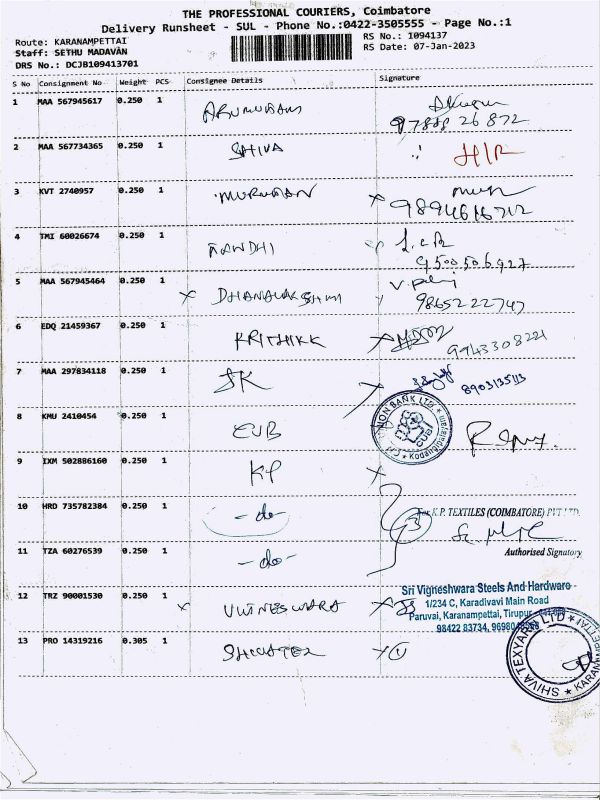 THE PROFESSIONAL COURIERS, Coimbatore
Delivery Runsheet - SUL - Phone No.:0422-3505555 - Page No.:1
Route: KARANAMPETTAI
Staff: SETHU MADAVAN
DRS No.: DCJB109413701
RS No.: 1094137
RS Date: 07-Jan-2023
S No Consignment No Weight PCS Consignee Details Signature
1 MAA 567945617 0.250 1 ARUMUGAM
97888 26 872
2 MAA 567734365 0.250 1 SHIVA H/R
3 KVT 2740957 0.250 1 MURUGAN
9894616712
4 TMI 60026674 0.250 1 NANDHI
9500506927
5 MAA 567945464 0.250 1 DHANALAKSHMI
9865222747
6 EDQ 21459367 0.250 1 KRITHIKK 9943308221
7 MAA 297834118 0.250 1 SK 8903135113
8 KMU 2410454 0.250 1 CUB
UNION BANK LTD
CUB
9 IXM 502886160 0.250 1 KP
10 HRD 735782384 0.250 1 -do-
For K.P. TEXTILES (COIMBATORE) PVT LTD.
Authorised Signatory
11 TZA 60276539 0.250 1 -do-
12 TRZ 90001530 0.250 1 VIGNESWARA
Sri Vigneshwara Steels And Hardware
1/234 C, Karadivavi Main Road
Paruvai, Karanampettai, Tirupur
98422 83734,
13 PRO 14319216 0.305 1
SHIVA TEXYARN LTD